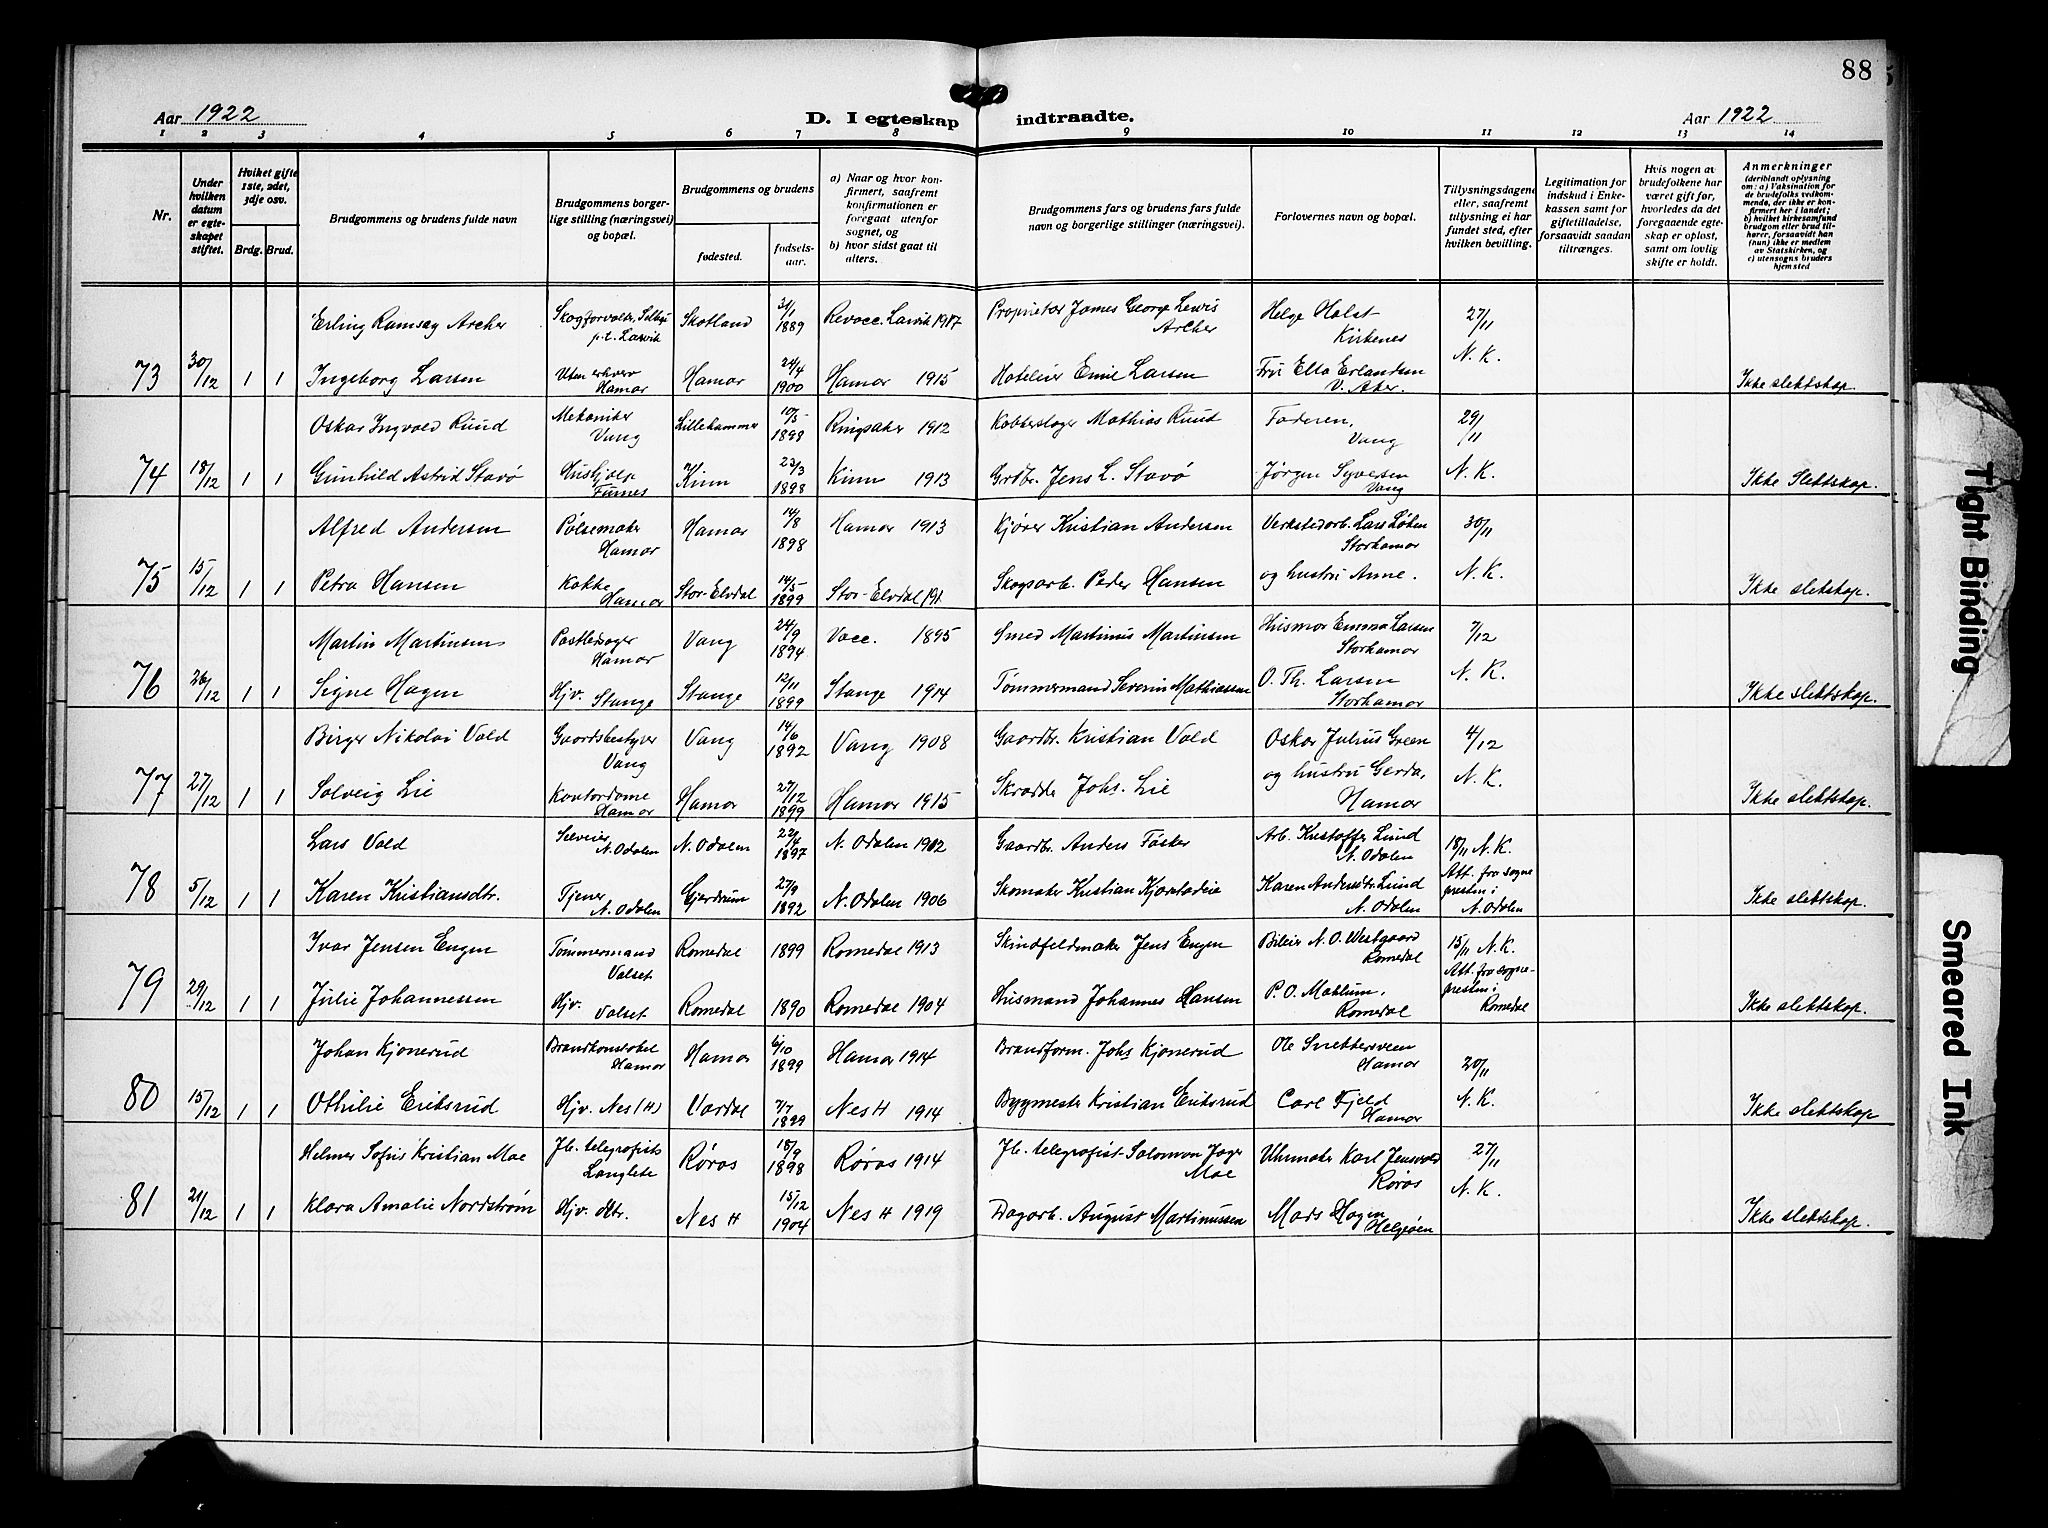 88
Aar 1922
D. I egteskap indtraadte.
Aar 1922
1 2 3 4 5 6 7 8 9 10 11 12 13 14
Nr.
Under hvilken datum er egteskapet stiftet.
Hviket gifte 1ste, 2det, 3dje osv.
Brdg. Brud.
Brudgommens og brudens fulde navn
Brudgommens borgerlige stilling (næringsvei) og bopæl.
Brudgommens og brudens
fødested.
fødselsaar.
a) Naar og hvor konfirmert, saafremt konfirmationen er foregaat utenfor sognet, og
b) hvor sidst gaat til alters.
Brudgommens fars og brudens fars fulde navn og borgerlige stillinger (næringsvei).
Forlovernes navn og bopæl.
Tillysningsdagene eller, saafremt tillysning ei har fundet sted, efter hvilken bevilling.
Legitimation for indskud i Enkekassen samt for giftetilladelse, forsaavidt saadan tiltrænges.
Hvis nogen av brudefolkene har været gift før, hvorledes da det foregaaende egteskap er opløst, samt om lovlig skifte er holdt.
Anmerkninger
(deriblandt oplysning om: a) Vaksination for de brudefolks vedkommende, der ikke er konfirmert her i landet; b) hvilket kirkesamfund brudgom eller brud tilhører, forsaavidt han (hun) ikke er medlem av Statskirken, og c) utensogns bruders hjemsted
Erling Ramsay Archer Skogforvalter, p.t. Larvik Skotland 31/1 1889 Larvik 1917 Proprietær James George Lewis Archer Helge Holst Kirkenes 27/11
73 30/12 1 1 Ingeborg Larsen Uten erhverv Hamar Hamar 24/4 1900 Hamar 1915 Hotelier Emil Larsen Fru Ella Erlandsen V. Aker. N. K. Ikke slektskap.
Oskar Ingvald Ruud Mekaniker Vang Lillehammer 10/5 1898 Ringsaker 1912 Kobberslager Mathias Ruud Faderen, Vang 29/11
74 18/12 1 1 Gunhild Astrid Stavø Hushjelp Furnes Kinn 23/3 1898 Kinn 1913 Grdbr. Jens L. Stavø Jørgen Syversen Vang N. K. Ikke Slektskap.
Alfred Andersen Pølsemaker Hamar Hamar 14/8 1898 Hamar 1913 Kjører Kristian Andersen Verkstedarb. Lars Løten Storhamar 30/11
75 15/12 1 1 Petra Hansen Kokke Hamar Stor-Elvdal 14/5 1899 Stor-Elvdal 191 Skogsarb. Peder Hansen og hustru Anne. N. K. Ikke slektskap.
Martin Martinsen Hamar Vang 24/9 1894 Vacc. 1895 Smed Martinus Martinsen Husmor Emma Larsen Storhamar 7/12
76 26/12 1 1 Signe Hagen Hjv. Stange Stange 12/11 1899 Stange 1914 Tømmermand Severin Mathiassen O. Th. Larsen Storhamar N. K. Ikke slektskap.
Birger Nikolai Vold Gaardsbestyrer Vang Vang 14/6 1892 Vang 1908 Gaardbr. Kristian Vold Oskar Julius Green 4/12
77 27/12 1 1 Solveig Lie Kontordame Hamar Hamar 27/12 1899 Hamar 1915 Skrædder Johs. Lie og hustru Gerda, Hamar N. K. Ikke slektskap.
Lars Vold Selveier N. Odalen N. Odalen 22/4 1897 N. Odalen 1912 Gaardbr. Anders Fasker Arb. Kristoffer Lund N. Odalen 18/11 N. K.
78 5/12 1 1 Karen Kristiansdtr. Tjener N. Odalen Gjerdrum 27/9 1892 N. Odalen 1906 Skomaker Kristian Karen Andersdtr. Lund N. Odalen Att. fra sognepresten i N. Odalen Ikke slektskap.
Ivar Jensen Engen Tømmermand Valset Romedal 1899 Romedal 1913 Skindfeldmaker Jens Engen Bileier N. O. Westgaard Romedal 15/11 N. K.
79 29/12 1 1 Julie Johannessen Hjv. Valset Romedal 1890 Romedal 1904 Husmand Johannes Hansen P. O. Mæhlum, Romedal Att. fra sognepresten i Romedal Ikke slektskap.
Johan Kjønerud Brandkonstabel Hamar Hamar 6/10 1899 Hamar 1914 Brandform. Johs Kjønerud Ole Snekkersveen Hamar 20/11
80 15/12 1 1 Othilie Eriksrud Hjv. Nes (H) Vardal 7/7 1899 Nes H 1914 Bygmester Kristian Eriksrud Carl Fjeld Hamar N. K. Ikke slektskap
Helmer Sofus Kristian Moe Jb. telegrafist Langlete Røros 18/9 1898 Røros 1914 Jb. telegrafist Salomon Jager Moe Uhrmaker Karl Jensvold Røros 27/11
81 21/12 1 1 Klara Amalie Nordstrøm Hjv. dtr. Nes H 15/12 1904 Nes H 1919 Dagarb. August Martinussen Mads Hagen Helgøen N. K. Ikke slektskap.
Tight Binding
Smeared Ink